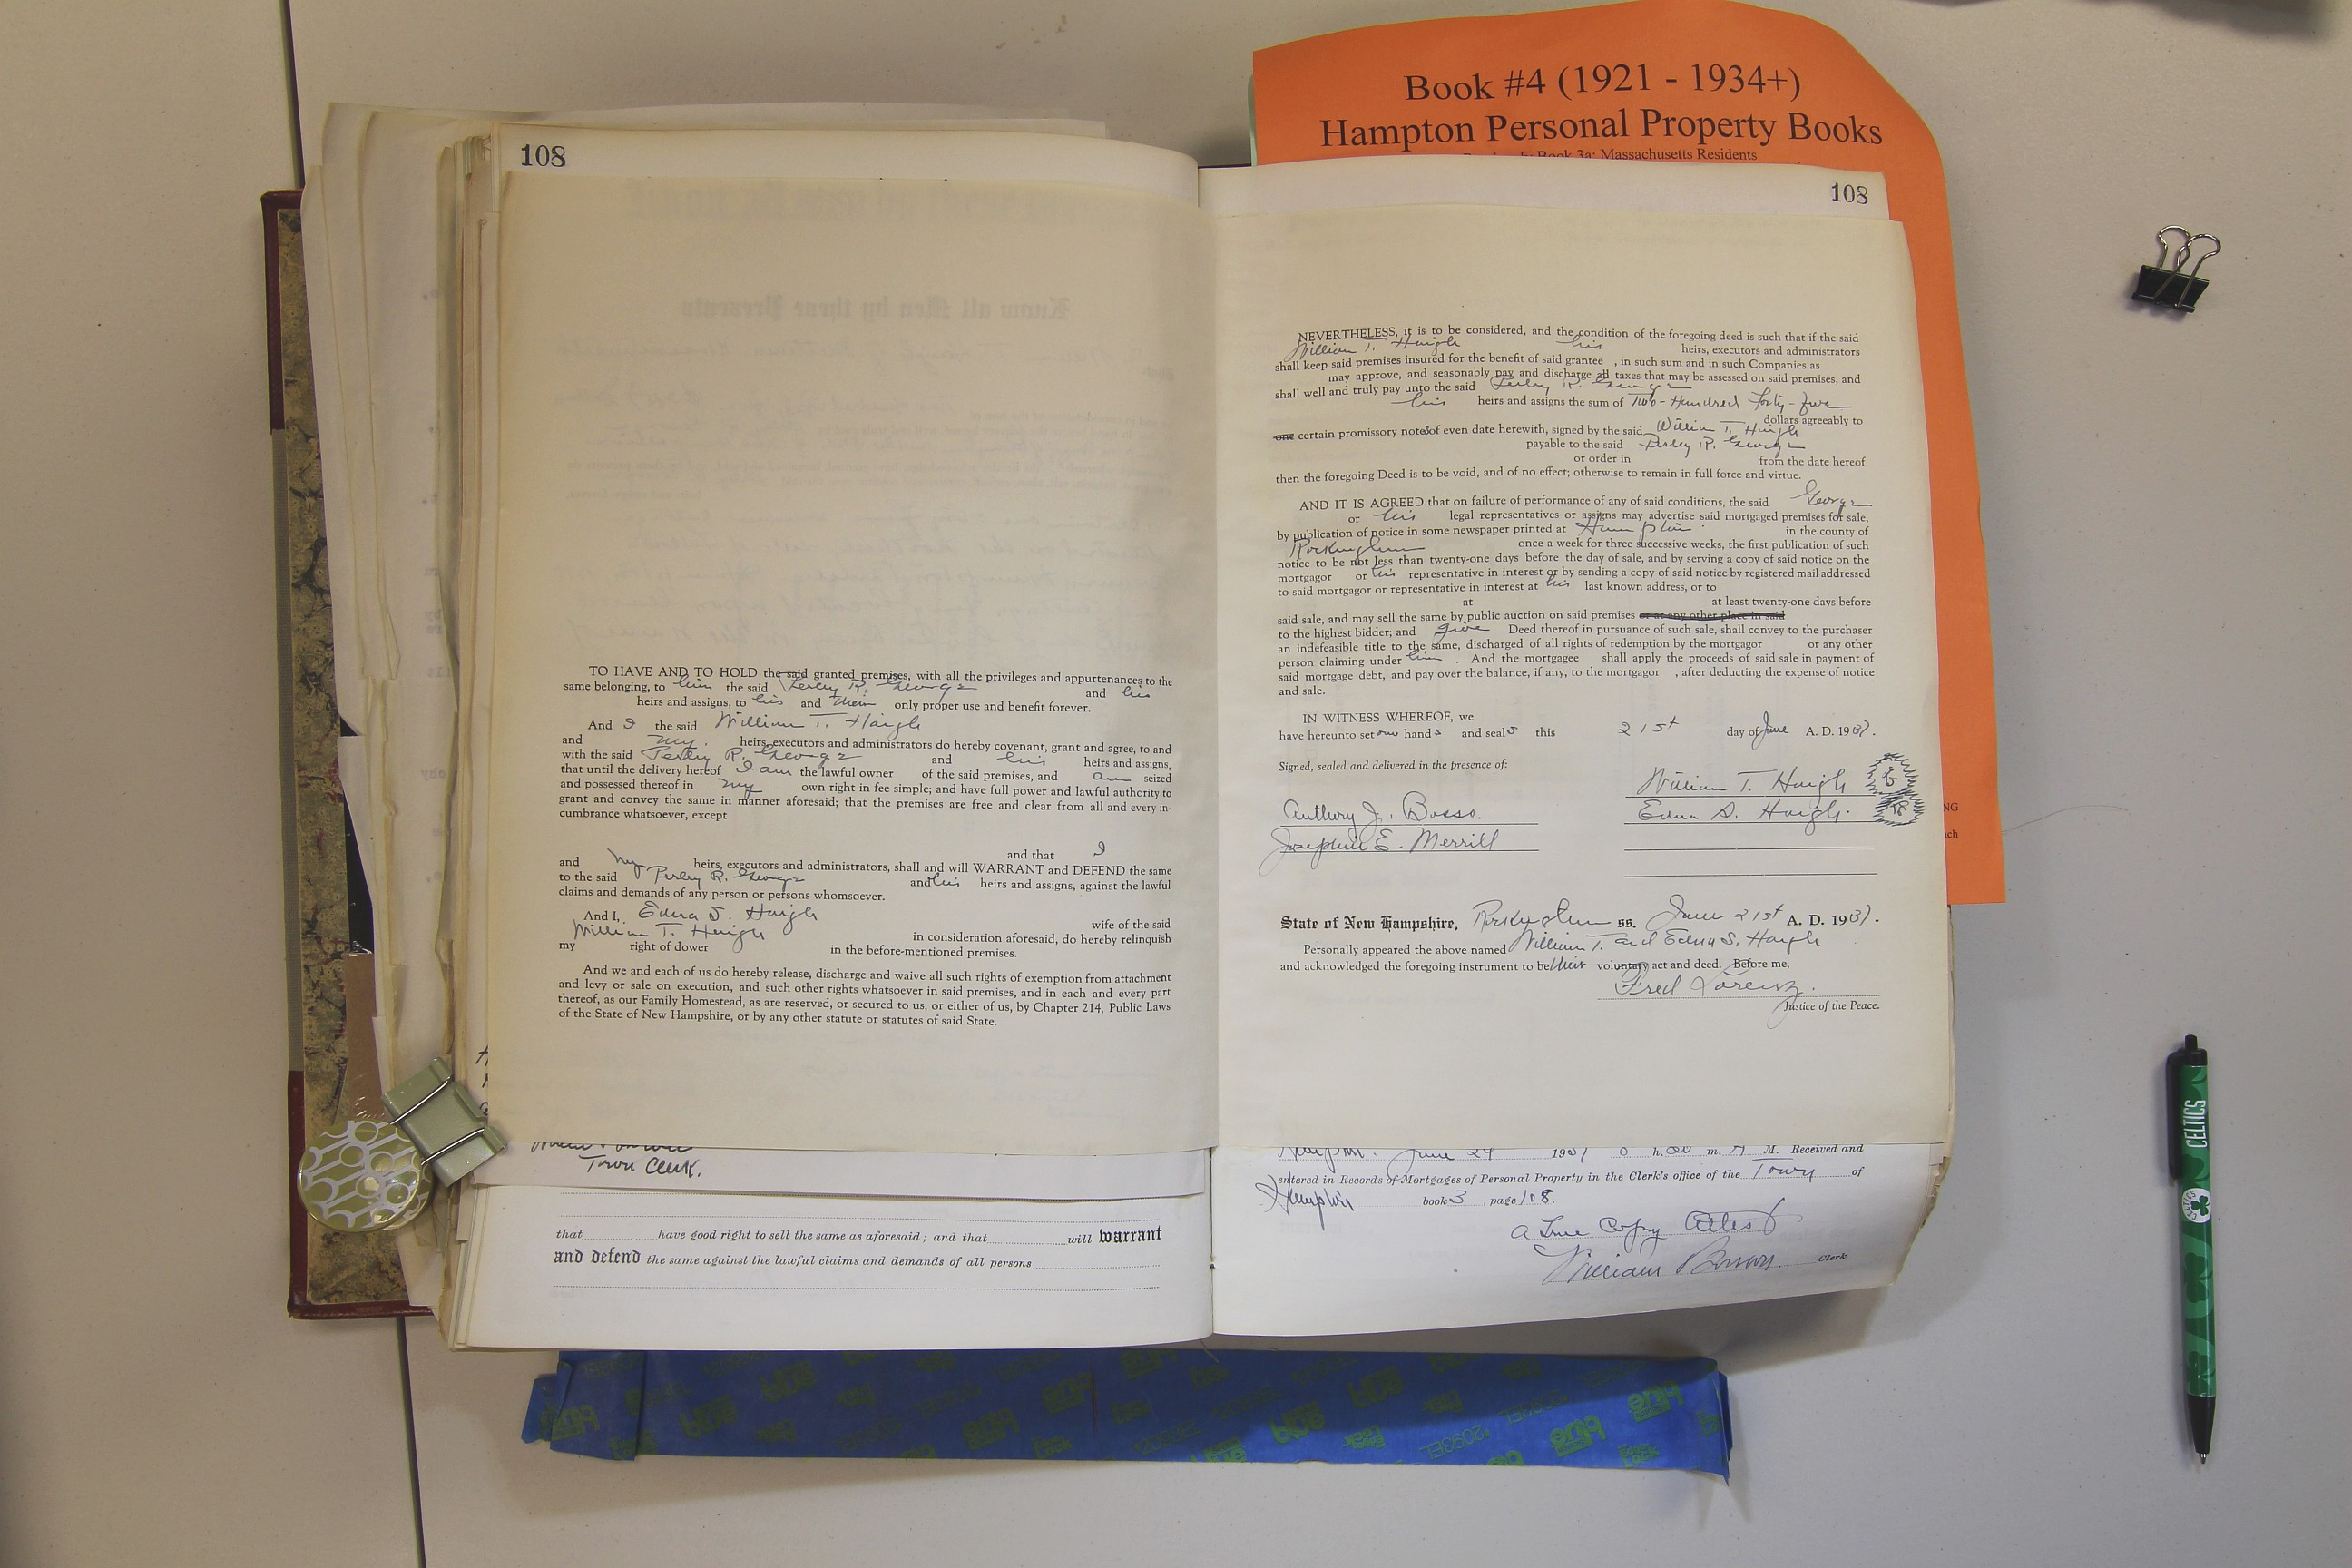 Book #4 (1921 - 1934+)
Hampton Personal Property Books
Book 3a: Massachusetts Residents
108
TO HAVE AND TO HOLD the said granted premises, with all the privileges and appurtenances to the
same belonging, to him the said Perley R. George and his
heirs and assigns, to his and their only proper use and benefit forever.
And I the said William T. Haigh
and my heirs, executors and administrators do hereby covenant, grant and agree, to and
with the said Perley R. George and his heirs and assigns,
that until the delivery hereof I am the lawful owner of the said premises, and am seized
and possessed thereof in my own right in fee simple; and have full power and lawful authority to
grant and convey the same in manner aforesaid; that the premises are free and clear from all and every in-
cumbrance whatsoever, except
and that I
and my heirs, executors and administrators, shall and will WARRANT and DEFEND the same
to the said Perley R. George and his heirs and assigns, against the lawful
claims and demands of any person or persons whomsoever.
And I, Edna S. Haigh wife of the said
William T. Haigh in consideration aforesaid, do hereby relinquish
my right of dower in the before-mentioned premises.
And we and each of us do hereby release, discharge and waive all such rights of exemption from attachment
and levy or sale on execution, and such other rights whatsoever in said premises, and in each and every part
thereof, as our Family Homestead, as are reserved, or secured to us, or either of us, by Chapter 214, Public Laws
of the State of New Hampshire, or by any other statute or statutes of said State.
Town Clerk.
that have good right to sell the same as aforesaid; and that will warrant
and defend the same against the lawful claims and demands of all persons
108
NEVERTHELESS, it is to be considered, and the condition of the foregoing deed is such that if the said
William T. Haigh his heirs, executors and administrators
shall keep said premises insured for the benefit of said grantee , in such sum and in such Companies as
may approve, and seasonably pay and discharge all taxes that may be assessed on said premises, and
shall well and truly pay unto the said Perley R. George
his heirs and assigns the sum of Two-Hundred Forty-five
dollars agreeably to
one certain promissory notes of even date herewith, signed by the said William T. Haigh
payable to the said Perley R. George
or order in from the date hereof
then the foregoing Deed is to be void, and of no effect; otherwise to remain in full force and virtue.
AND IT IS AGREED that on failure of performance of any of said conditions, the said George
or his legal representatives or assigns may advertise said mortgaged premises for sale,
by publication of notice in some newspaper printed at Hampton in the county of
Rockingham once a week for three successive weeks, the first publication of such
notice to be not less than twenty-one days before the day of sale, and by serving a copy of said notice on the
mortgagor or his representative in interest or by sending a copy of said notice by registered mail addressed
to said mortgagor or representative in interest at his last known address, or to
at at least twenty-one days before
said sale, and may sell the same by public auction on said premises or at any other place in said
to the highest bidder; and give Deed thereof in pursuance of such sale, shall convey to the purchaser
an indefeasible title to the same, discharged of all rights of redemption by the mortgagor or any other
person claiming under him . And the mortgagee shall apply the proceeds of said sale in payment of
said mortgage debt, and pay over the balance, if any, to the mortgagor , after deducting the expense of notice
and sale.
IN WITNESS WHEREOF, we
have hereunto set our hands and seals this 21st day of June A. D. 1937.
Signed, sealed and delivered in the presence of:
William T. Haigh
Anthony J. Bosso.
Edna S. Haigh.
Josephine E. Merrill
State of New Hampshire, Rockingham ss. June 21st A. D. 1937.
Personally appeared the above named William T. and Edna S. Haigh
and acknowledged the foregoing instrument to be their voluntary act and deed. Before me,
Fred Lorenz.
Justice of the Peace.
Hampton. June 24 1937 h. m. M. Received and
entered in Records of Mortgages of Personal Property in the Clerk's office of the Town of
Hampton book 3 , page 108.
A True Copy Attest
William Brown Clerk
CELTICS
CELTICS